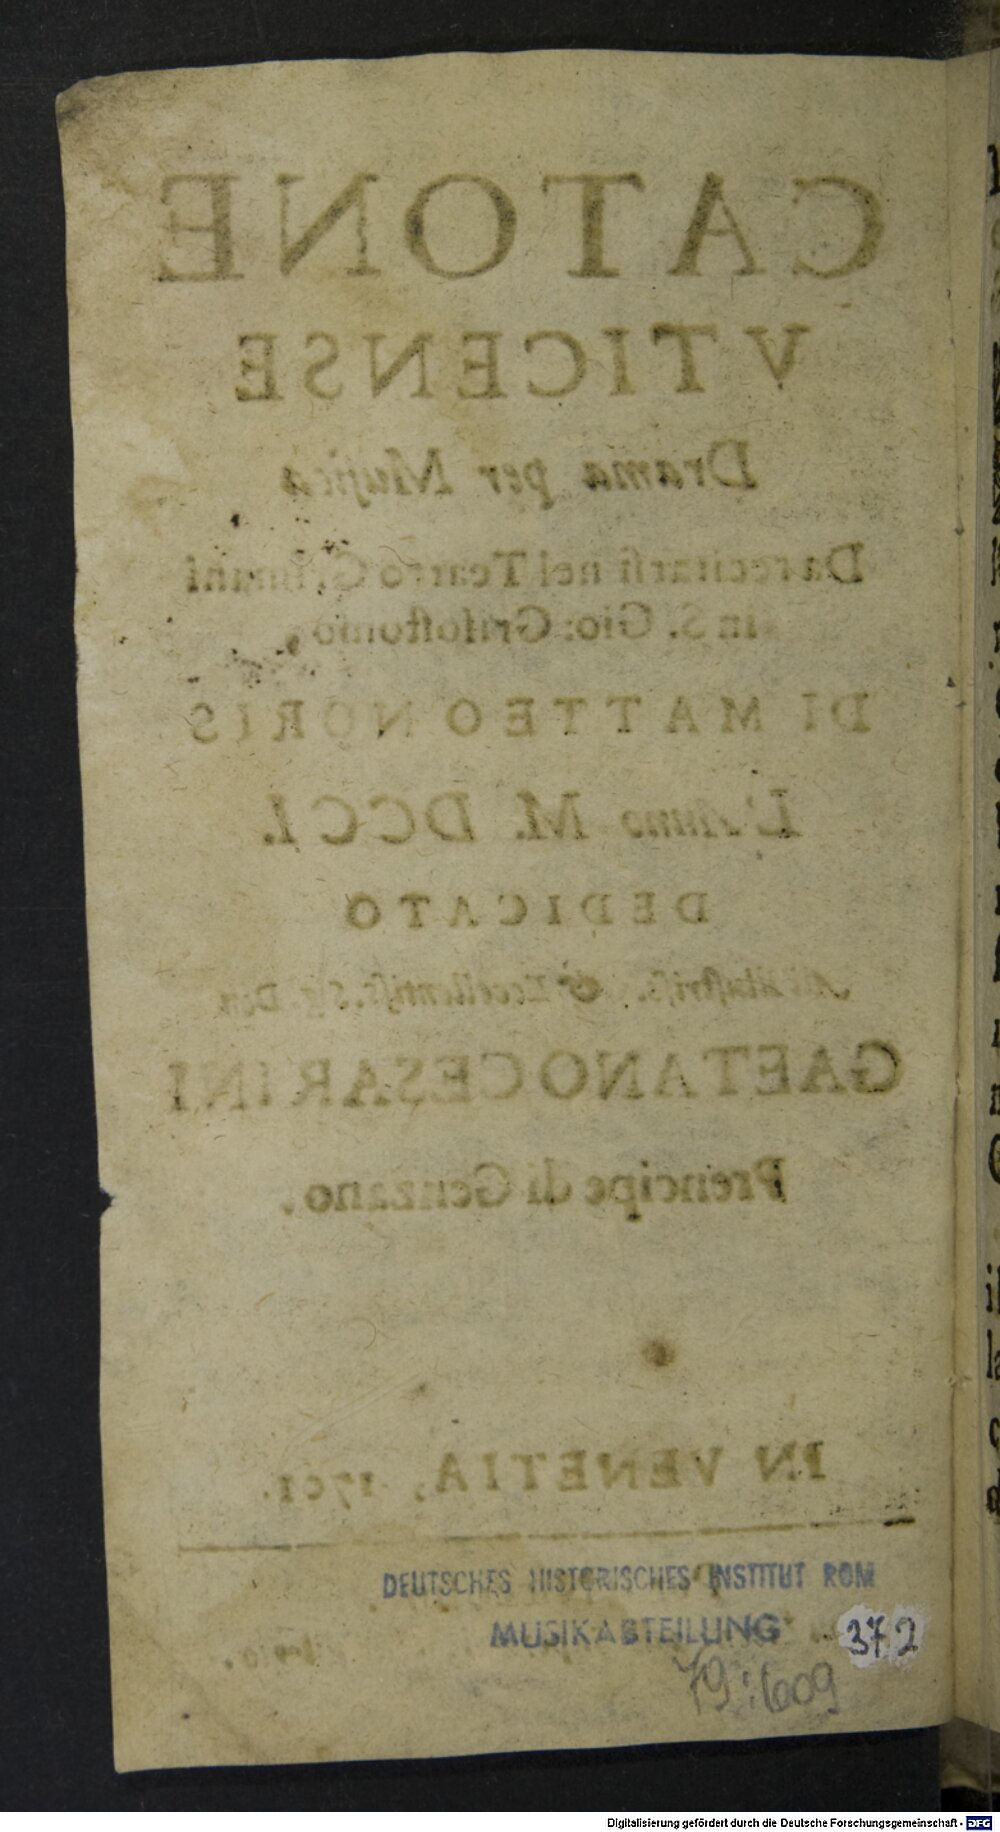 CATONE
VTICENSE
Drama per Musica
Da recitarsi nel Teatro Grimani
in S. Gio: Grisostomo,
DI MATTEO NORIS
L'Anno M. DCCI.
DEDICATO
All'Illustriss. & Eccellentiss. Sig. Don
GAETANO CESARINI
Prencipe di Genzano.
IN VENETIA, 1701.
DEUTSCHES HISTORISCHES INSTITUT ROM
MUSIKABTEILUNG
372
79:609
Digitalisierung gefördert durch die Deutsche Forschungsgemeinschaft - DFG